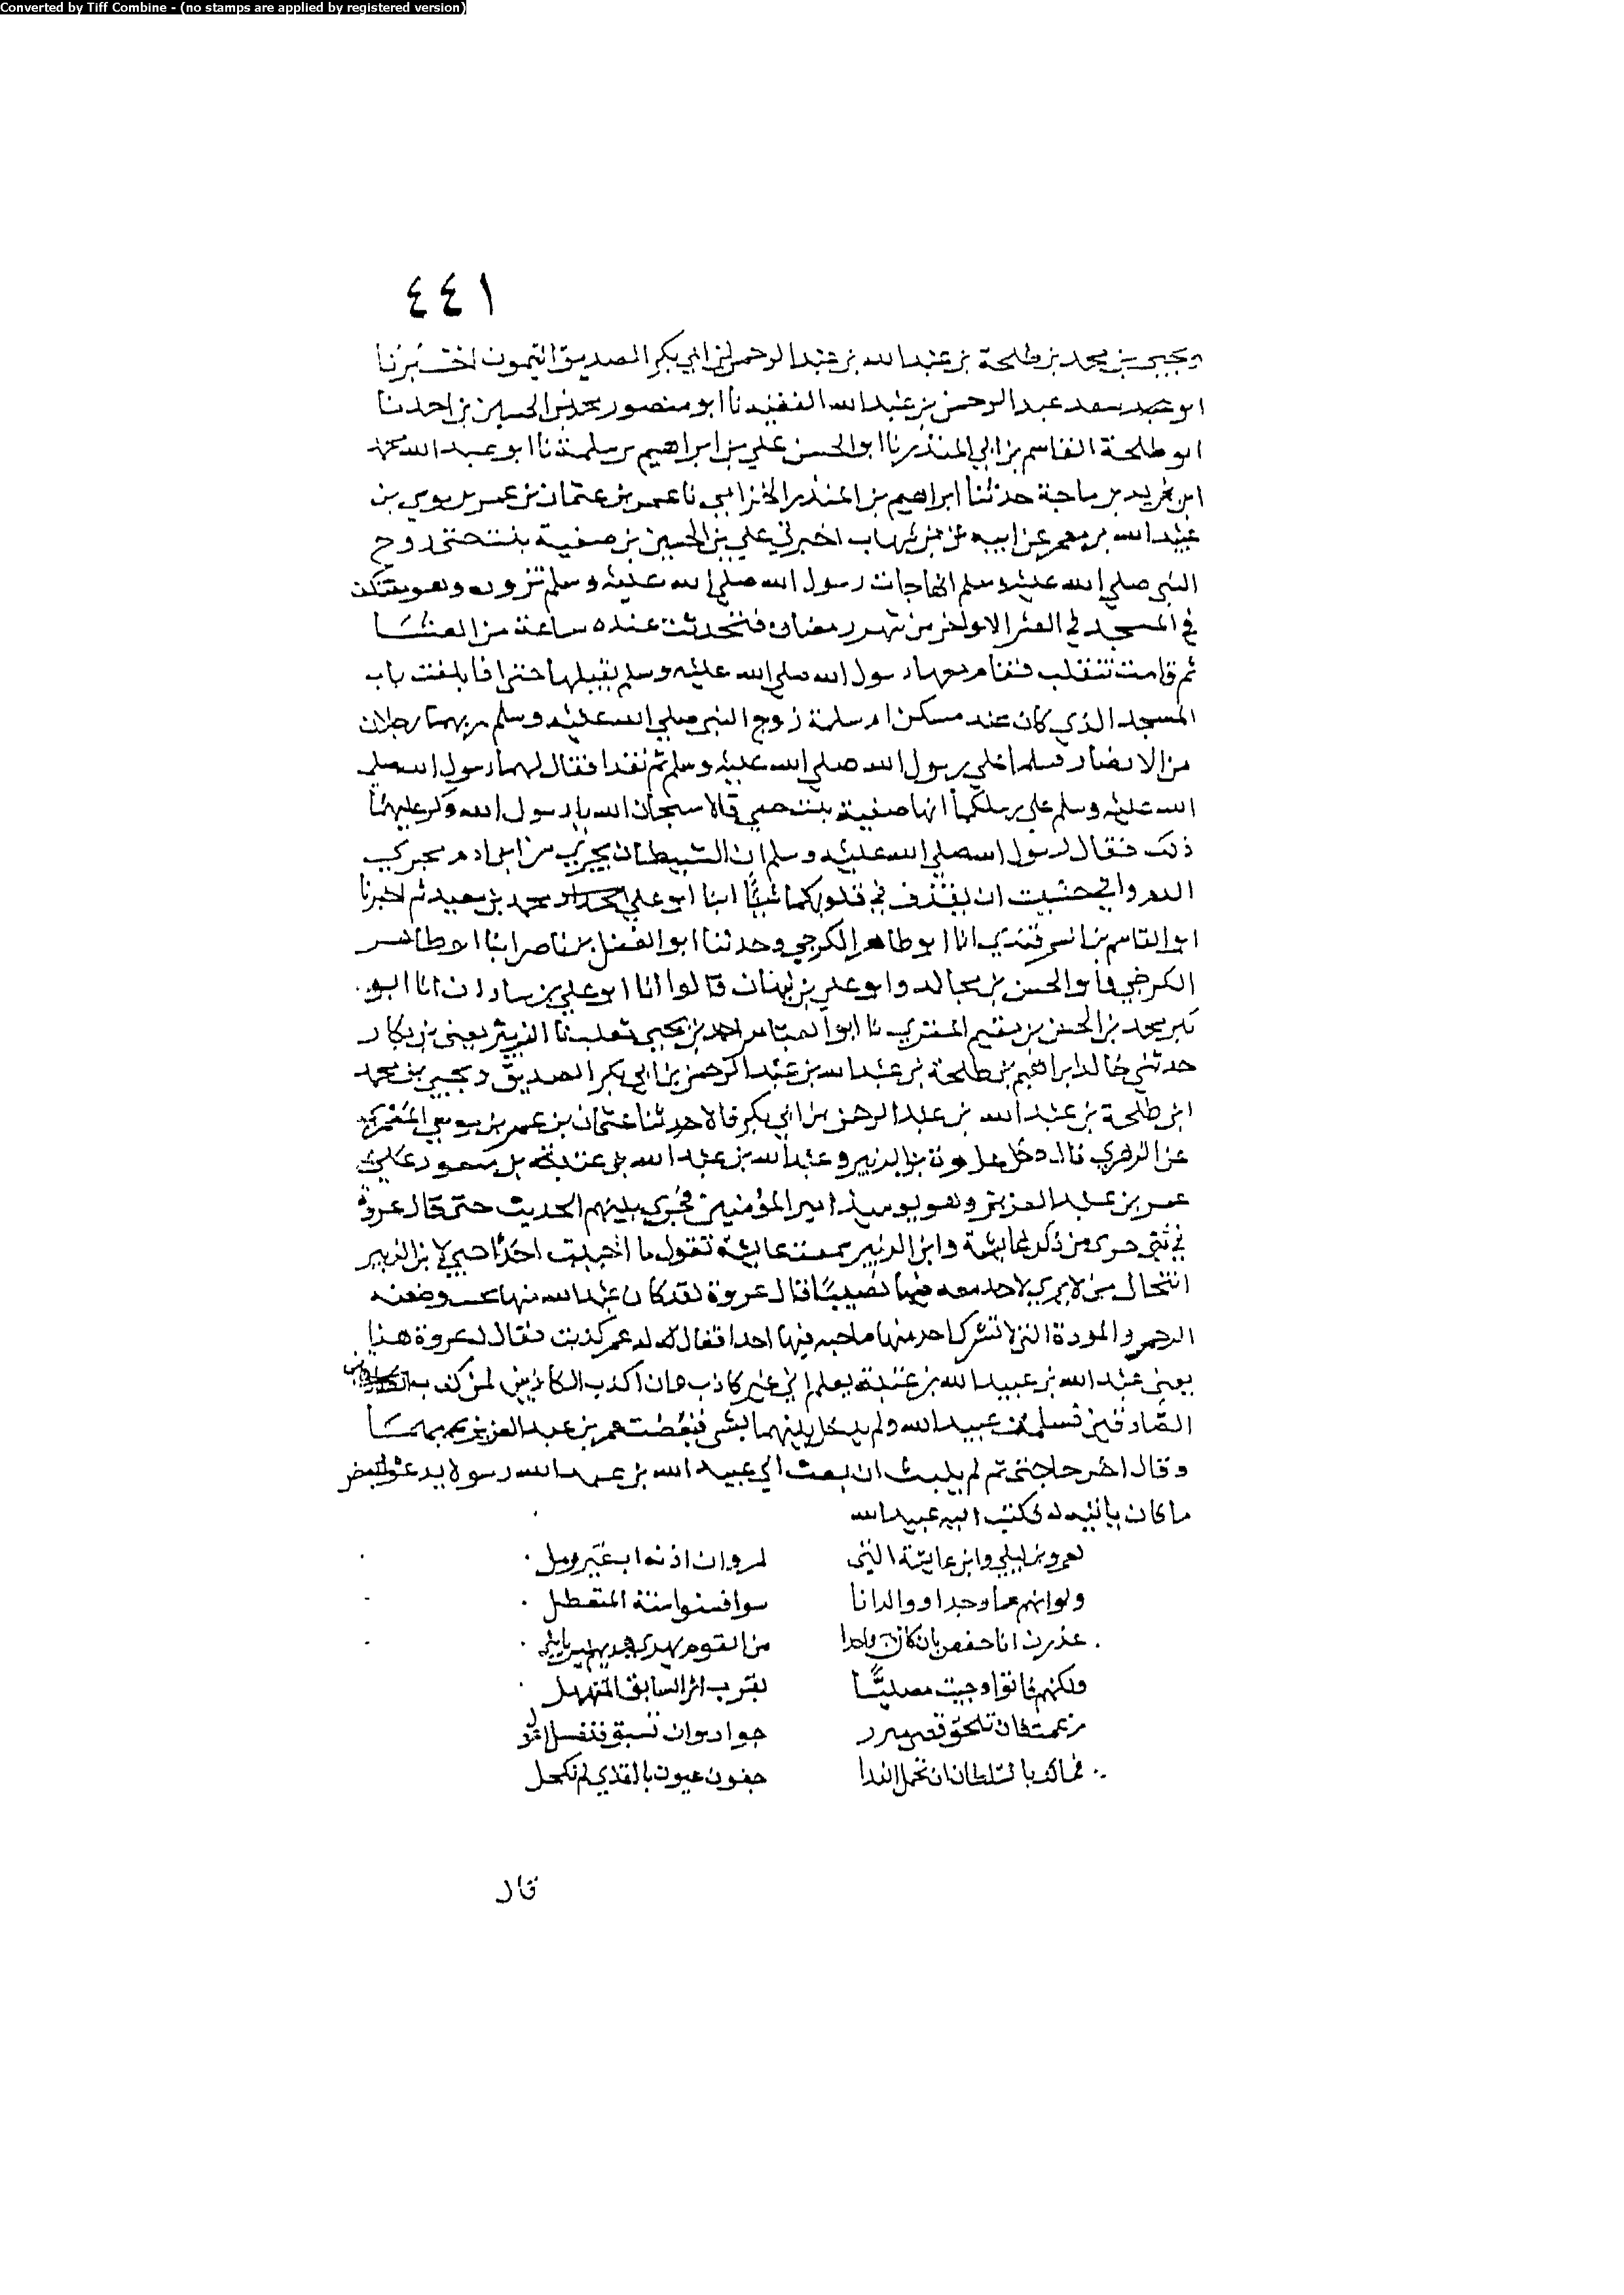 Converted by Tiff Combine - (no stamps are applied by registered version)
٤٤١
ويحيى بن محمد بن طلحة بن عبدالله بن عبدالرحمن بن ابي بكر الصديق التيمون اخبرنا
ابو محمد سعد عبدالرحمن بن عبدالله الفقيه نا ابو منصور محمد بن الحسين بن احمد نا
ابو طلحة القاسم بن ابي المنذر نا ابو الحسن علي بن ابراهيم بن سلمة نا ابو عبدالله محمد
ابن يزيد بن ماجة حدثنا ابراهيم بن المنذر الحزامي نا عمر بن عثمان بن عمر بن موسى بن
عبيدالله بن معمر عن ابيه عن ابن شهاب اخبرني علي بن الحسين بن صفية بنت حيي زوج
النبي صلى الله عليه وسلم انها جات رسول الله صلى الله عليه وسلم تزوره وهو معتكف
في المسجد في العشر الاواخر من شهر رمضان فتحدثت عنده ساعة من العشا
ثم قامت تنقلب فقام معها رسول الله صلى الله عليه وسلم يقبلها حتى اذا بلغت باب
المسجد الذي كان عند مسكن ام سلمة زوج النبي صلى الله عليه وسلم مر بهما رجلان
من الانصار فسلما على رسول الله صلى الله عليه وسلم ثم نفذا فقال لهما رسول الله صلى
الله عليه وسلم على رسلكما انها صفية بنت حيي قالا سبحان الله يا رسول الله وكبر عليهما
ذلك فقال رسول الله صلى الله عليه وسلم ان الشيطان يجري من ابن ادم مجرى
الدم واني خشيت ان يقذف في قلوبكما شيئا انبا ابو علي محمد بن سعيد ثم اخبرنا
ابو القاسم بن السمرقندي انا ابو طاهر الكرجي وحدثنا ابو الفضل بن ناصر انبا ابو طاهر
الكرجي وابو الحسن بن مجالد وابو علي بن نبهان قالوا انا ابو علي بن شاذان انا ابو
بكر محمد بن الحسن بن مقسم المقري نا ابو العباس احمد بن يحيى ثعلب نا الزبير يعني بن بكار
حدثني خالد ابراهيم بن طلحة بن عبدالله بن عبدالرحمن بن ابي بكر الصديق ويحيى بن محمد
ابن طلحة بن عبدالله بن عبدالرحمن بن ابي بكر قالا حدثنا عثمان بن عمر بن موسى المعمري
عن الزهري قال دخل عروة بن الزبير وعبدالله بن عبدالله بن عتبة بن مسعود على
عمر بن عبدالعزيز وهو يوميذ امير المؤمنين فجرى بينهم الحديث حتى قال عروة
في شي جرى من ذكر عايشة وابن الزبير سمعت عايشة تقول ما احببت احدًا حبي لابن الزبير
لاحد معه فيها نصيبًا فقال عروة لقد كان عبدالله منها
الرحم والمودة التي لا تشرك احد منهما صاحبه فيها احدا فقال له عمر كذبت فقال عروة هذا
يعني عبدالله بن عبيدالله بن عتبة يعلم اني غير كاذب وان اكذب الكاذبين لمن كذب
الصادقين فسكت عبيدالله ولم يدخل بينهما بشي عمر بن عبدالعزيز
وقال اخرجا عني ثم لم يلبث ان بعث الى عبيدالله بن عبدالله رسولا يدعوه لبعض
ما كان ياتيه له فكتب اليه عبيدالله
لعمرو بن ليلى وابن عايشة التي
لمروان ادته اب غير زمل
ولو انهم عما وجدا ووالدا
عذرت ابا حفص بان كان واحدا
من القوم يهدي هديهم
ولكنهم فاتوا وجيت مصليًّا
تقرب اثر السابق المتمهل
زعمت فان تلحق
جواد وان تسبق فنفسك
فمالك بالسلطان ان تحمل القذا
جفون عيون بالقذي لم تكحل
قال